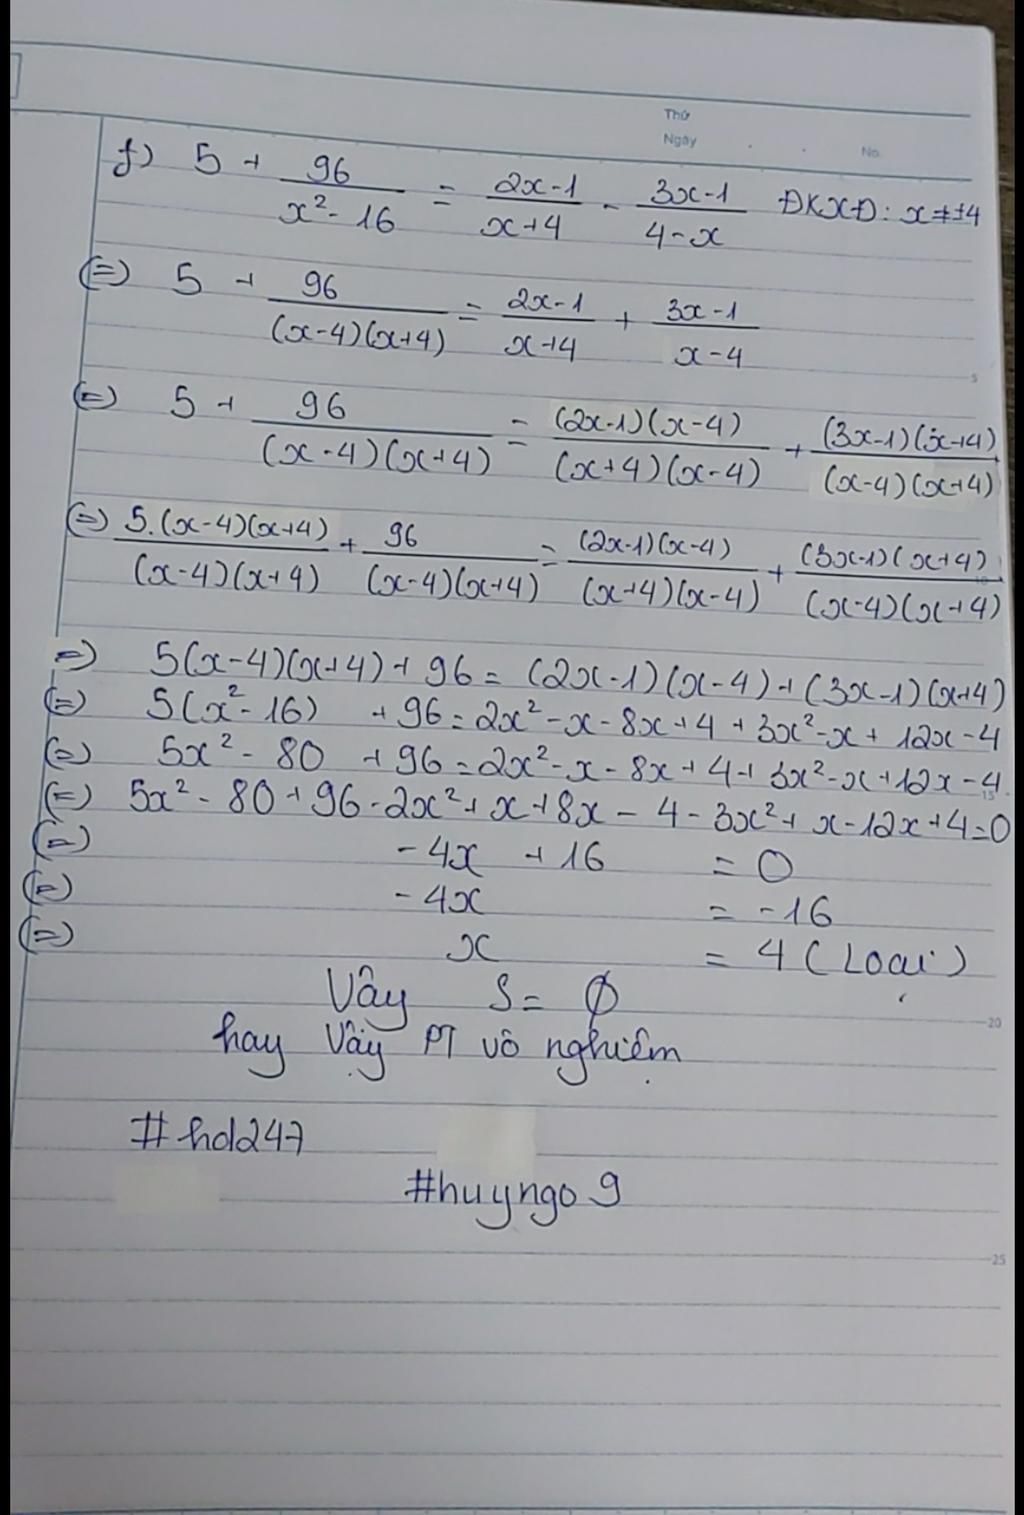 Thứ
Ngày No.
f) 5 + 96/(x² - 16) = (2x-1)/(x+4) - (3x-1)/(4-x) ĐKXĐ: x ≠ ±4
(=) 5 + 96/((x-4)(x+4)) = (2x-1)/(x+4) + (3x-1)/(x-4)
5
(=) 5 + 96/((x-4)(x+4)) = ((2x-1)(x-4))/((x+4)(x-4)) + ((3x-1)(x+4))/((x-4)(x+4))
(=) (5.(x-4)(x+4))/((x-4)(x+4)) + 96/((x-4)(x+4)) = ((2x-1)(x-4))/((x+4)(x-4)) + ((3x-1)(x+4))/((x-4)(x+4))
10
=) 5(x-4)(x+4) + 96 = (2x-1)(x-4) + (3x-1)(x+4)
(=) 5(x²-16) + 96 = 2x² - x - 8x + 4 + 3x² - x + 12x - 4
(=) 5x² - 80 + 96 = 2x² - x - 8x + 4 + 3x² - x + 12x - 4
15
(=) 5x² - 80 + 96 - 2x² + x + 8x - 4 - 3x² + x - 12x + 4 = 0
(=) -4x + 16 = 0
(=) -4x = -16
(=) x = 4 (Loại)
Vậy S = ∅
20
hay Vậy PT vô nghiệm
#hd247
#huyngo9
25